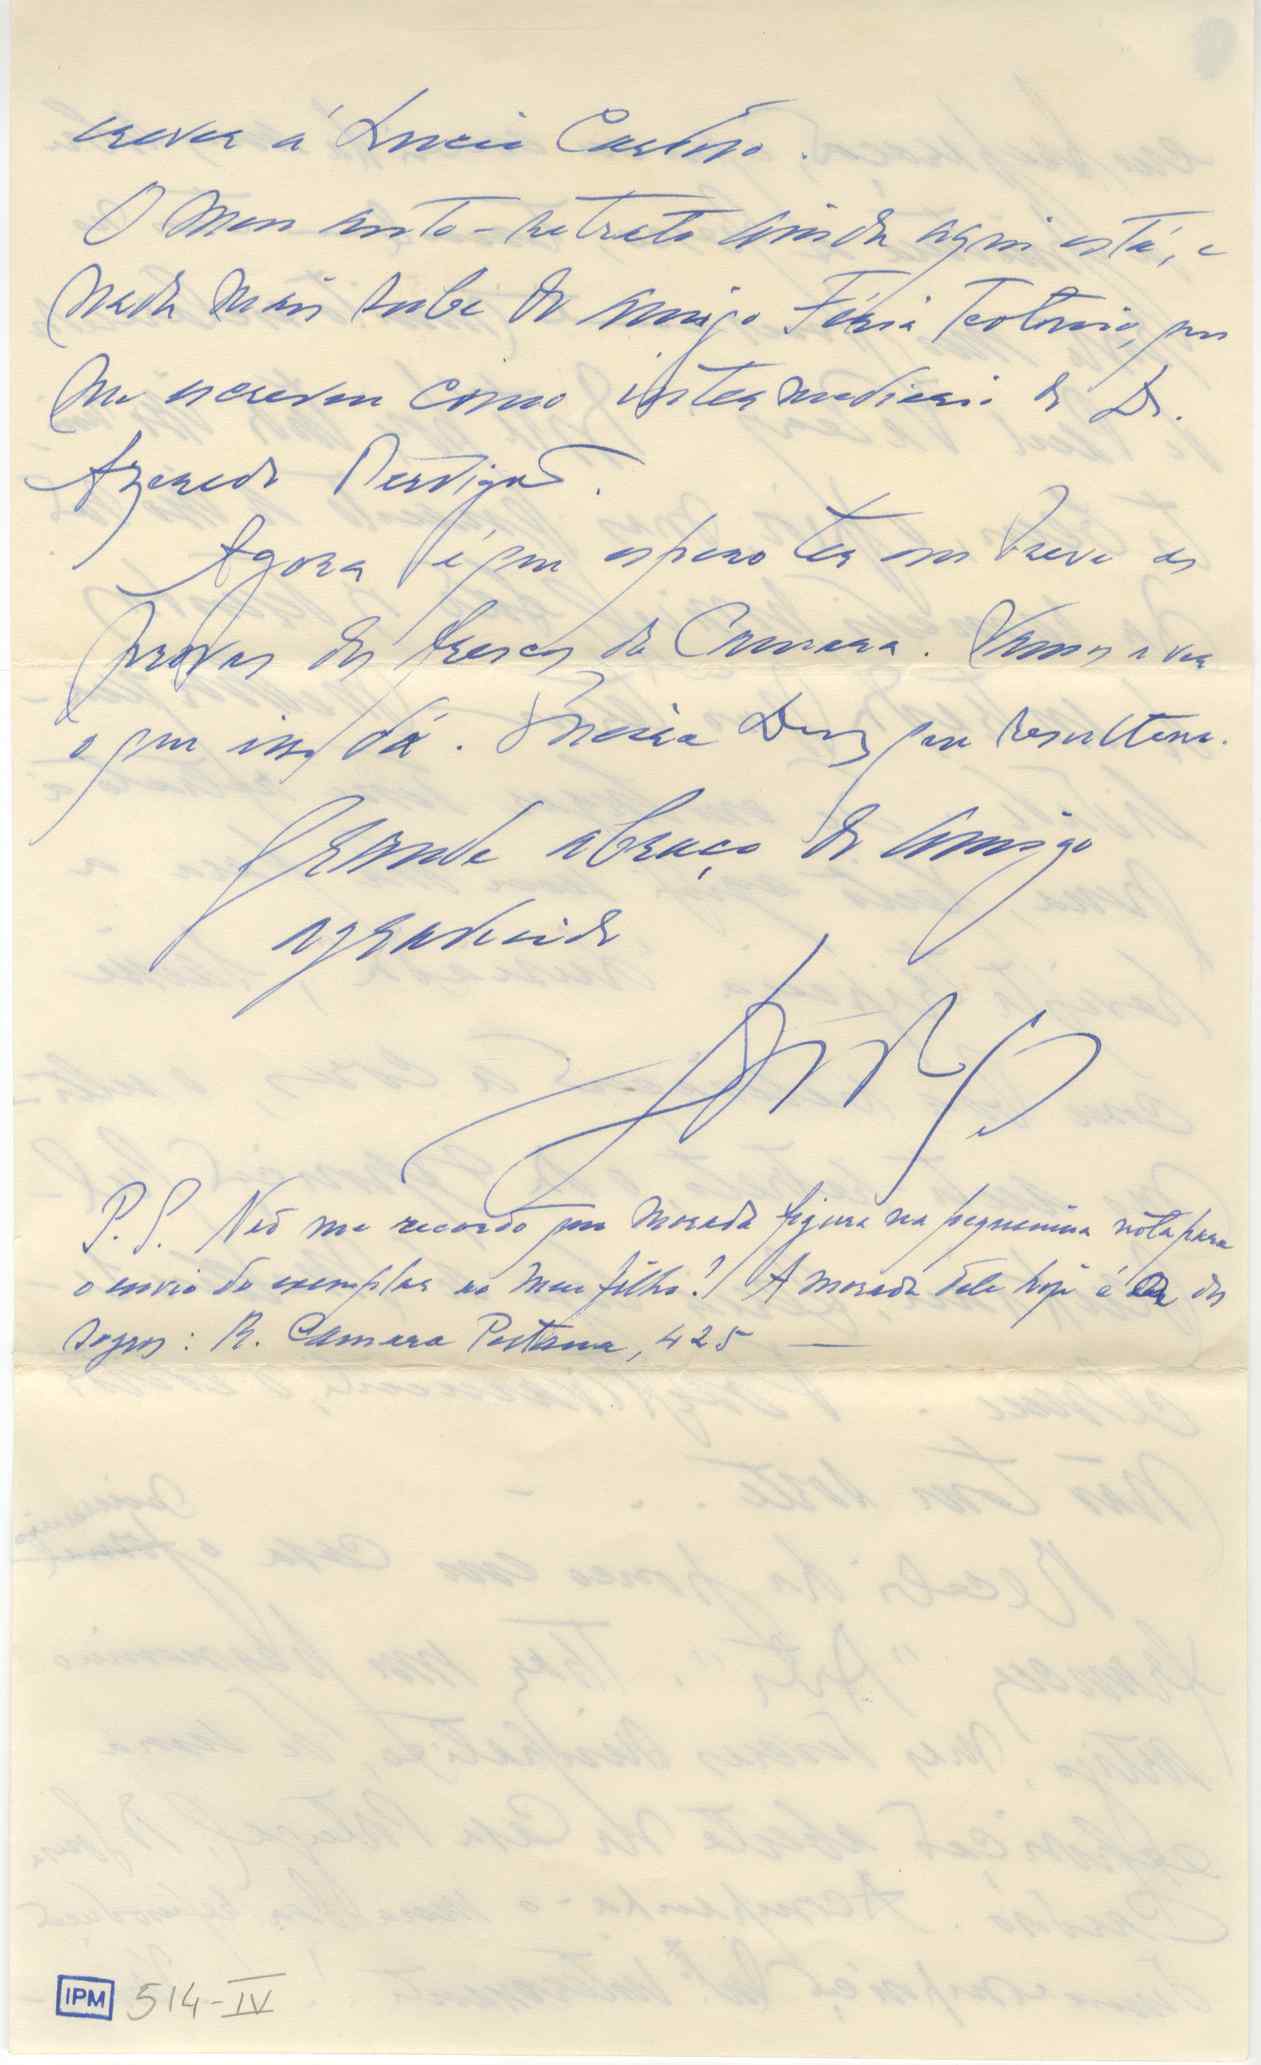 crever á Lucio Cardoso.
O meu auto-retrato ainda aqui está, e
nada mais soube do amigo Faria Teotonio, que
me escreveu como intermediario do Dr.
Azeredo Perdigaõ.
Agora é que espero ter em breve as
provas dos frescos da Camara. Vamos a ver
o que isso dá. Queira Deus que resultem.
Grande abraço do amigo
agradecido
P.S. Naõ me recordo que morada figura na pequenina nota para
o envio do exemplar ao meu filho! A morada dele hoje é dos
sogros: R. Camara Pestana, 425 —
IPM 514-IV